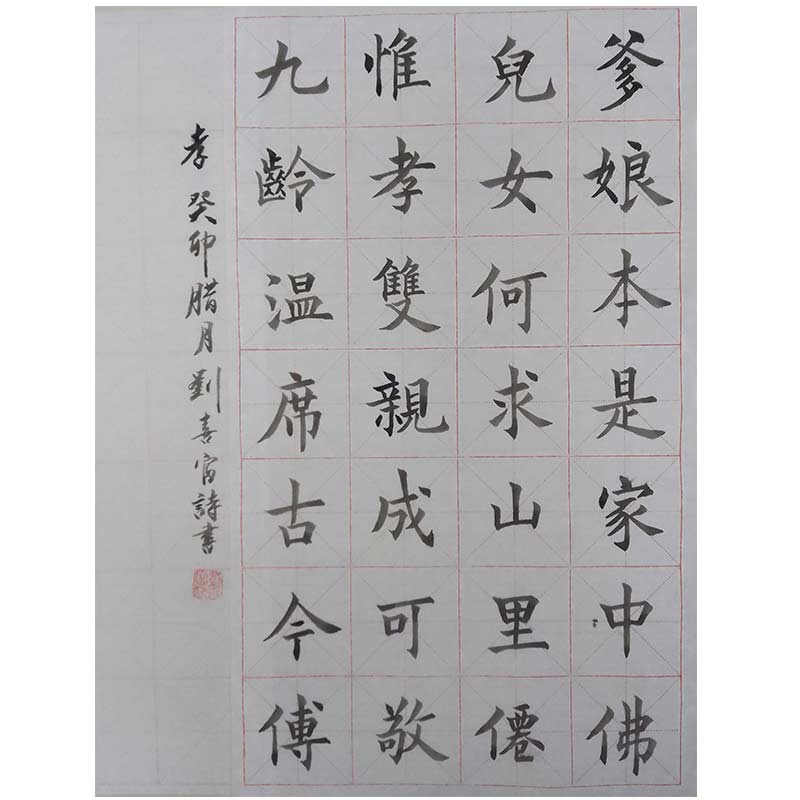 爹娘本是家中佛
兒女何求山里僊
惟孝雙親成可敬
九齡温席古今傅
孝 癸卯腊月劉喜富詩書